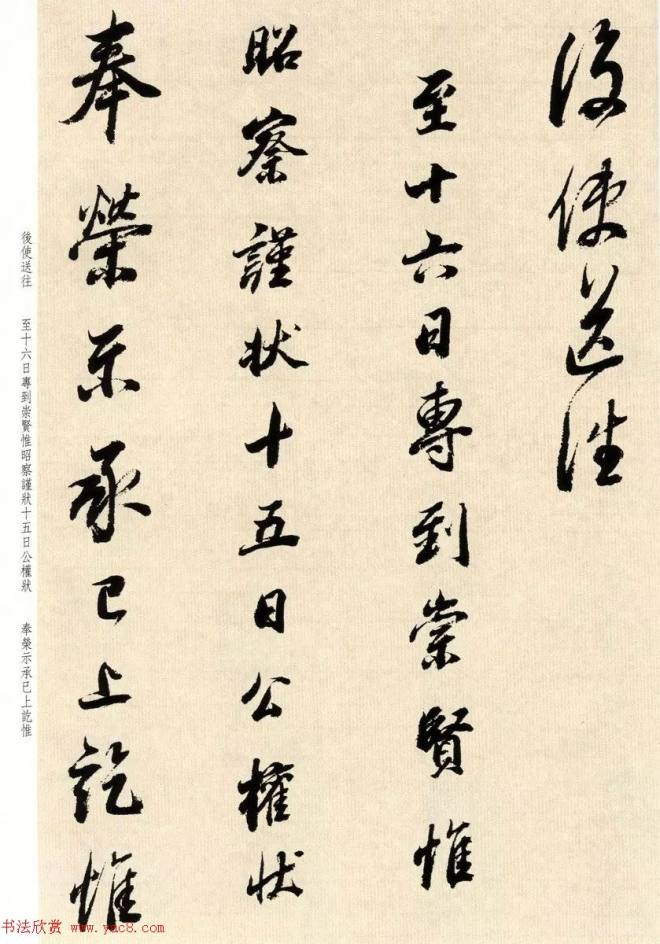 後使送往
至十六日專到崇賢惟
昭察謹狀十五日公權狀
奉榮示承已上訖惟
後使送往 至十六日專到崇賢惟昭察謹狀十五日公權狀 奉榮示承已上訖惟
书法欣赏 www.yac8.com